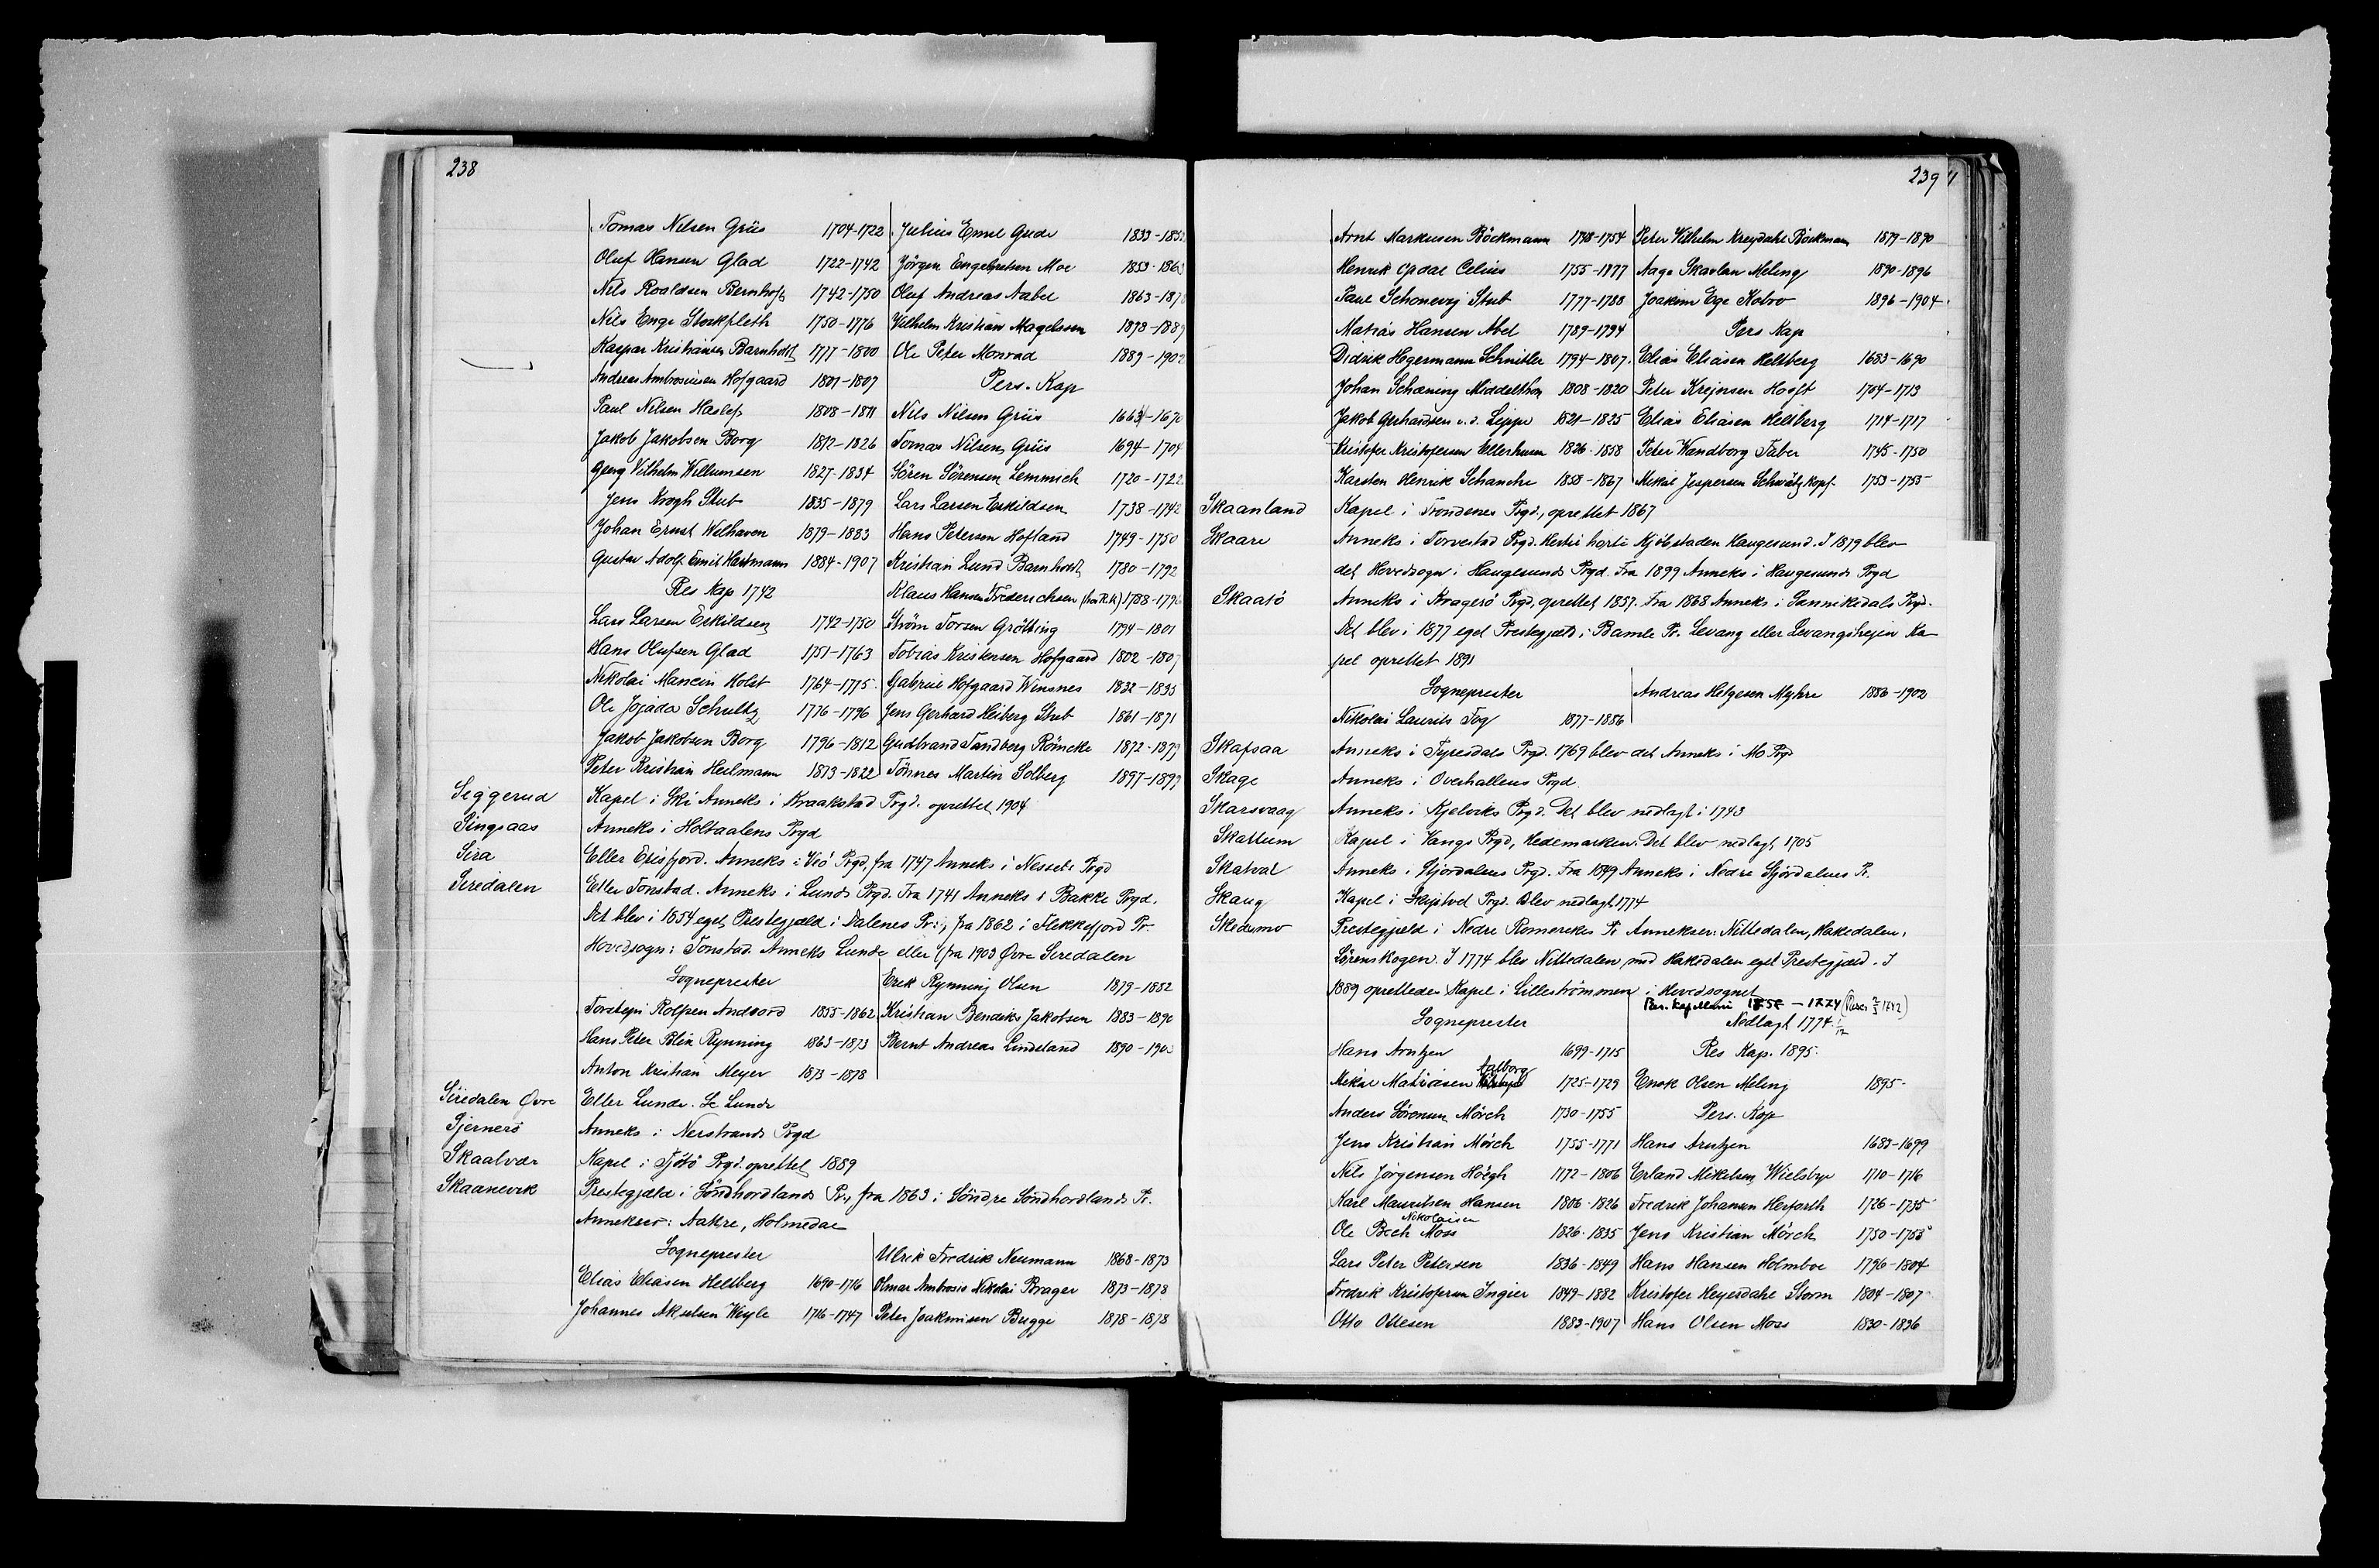 238
Tomas Nilsen Griis 1704-1722
Oluf Hansen Glad 1722-1742
Nils Roaldsen Bernhoft 1742-1750
Nils Enge Stockfleth 1750-1776
Kaspar Kristiansen Barnholdt 1777-1800
Andreas Ambrosiussen Hofgaard 1801-1807
Paul Nilsen Haslef 1808-1811
Jakob Jakobsen Borg 1812-1826
Georg Vilhelm Willumsen 1827-1834
Jens Krogh Stub 1835-1879
Johan Ernst Welhaven 1879-1883
Gustav Adolf Emil Hartmann 1884-1907
Res Kap 1742
Lars Larsen Eskildsen 1742-1750
Hans Olufsen Glad 1751-1763
Nikolai Mancin Holst 1764-1775
Ole Jojada Schultz 1776-1796
Jakob Jakobsen Borg 1796-1812
Peter Kristian Heilmann 1813-1822
Julius Emil Gude 1833-185
Jörgen Engebretsen Moe 1853-1863
Oluf Andreas Aabel 1863-187
Vilhelm Kristian Magelssen 1878-1889
Ole Peter Monrad 1889-1902
Pers. Kap
Nils Nilsen Griis 1664-167
Tomas Nilsen Griis 1694-1704
Sören Sörensen Lemmich 1720-1722
Lars Larsen Eskildsen 1738-1742
Hans Petersen Hofland 1749-1750
Kristian Lund Barnholdt 1780-1792
Klaus Hansen Frederichsen 1788-179
Ström Torsen Grötting 1794-1801
Tobias Kristensen Hofgaard 1802-1807
Gabriel Hofgaard Winsnes 1832-1835
Jens Gerhard Heiberg Stub 1861-1871
Gudbrand Tandberg Römcke 1872-1879
Tönnes Martin Solberg 1897-1899
Siggerud Kapel i Ski Anneks i Kraakstad Prgd. oprettet 1904
Singsaas Anneks i Holtaalens Prgd
Sira Eller Erisfjord. Anneks i Veö Prgd, fra 1747 Anneks i Nessets Prgd
Siredalen Eller Tonstad. Anneks i Lunds Prgd. Fra 1741 Anneks i Bakke Prgd.
Det blev i 1854 eget Prestegjæld i Dalenes Pr., fra 1862 i Flekkefjord Pr.
Hovedsogn: Tonstad. Anneks Lunde eller (fra 1903 Övre Siredalen
Sogneprester
Torstein Rolfsen Andsord 1855-1862
Hans Peter Blix Rynning 1863-1873
Anton Kristian Meyer 1873-1878
Erik Rynning Olsen 1879-1882
Kristian Bendiks Jakobsen 1883-1890
Bernt Andreas Lindeland 1890-190
Siredalen Övre Eller Lunde. Se Lunde
Sjernerö Anneks i Nerstrands Prgd
Skaalvær Kapel i Tjötö Prgd. oprettet 1889
Skaanevik Prestegjæld i Söndhordlands Pr., fra 1863 i Söndre Söndhordlands Pr.
Annekser: Aakre, Holmedal
Sogneprester
Elias Eliasen Heltberg 1690-1716
Johannes Akselsen Weyle 1716-1747
Ulrik Fredrik Neumann 1868-1873
Olmar Ambrosio Nikolai Brager 1873-1878
Peter Joakimsen Brugge 1878-1878
239
Arnt Markusen Böckmann 1748-1754
Henrik Opdal Celius 1755-1777
Paul Schonevig Stub 1777-1788
Matias Hansen Abel 1789-1794
Didrik Hegermann Schnitler 1794-1807
Johan Schöning Middelthon 1808-1820
Jakob Gerhardsen v.d. Lippe 1821-1825
Kristofer Kristofersen Ellerhusen 1826-1858
Karsten Henrik Schanche 1858-1867
Peter Vilhelm Kreydahl Böckman 1879-1890
Aage Skavlan Meling 1890-1896
Joakim Ege Kobro 1896-1904
Pers Kap
Elias Eliasen Heltberg 1683-1690
Peter Krejnsen Hooft 1704-1713
Elias Eliasen Heltberg 1714-1717
Peter Wandborg Faber 1745-1750
Mikal Jespersen Schwätzkopf 1753-1755
Skaanland Kapel i Trondenes Prgd., oprettet 1867
Skaare Anneks i Torvestad Prgd. Hertil hörte Kjöbstaden Haugesund. I 1879 blev
det Hovedsogn i Haugesunds Prgd. Fra 1899 Anneks i Haugesunds Prgd
Skaatö Anneks i Kragerö Prgd, oprettet 1857. Fra 1868 Anneks i Sannikedals Prgd.
Det blev i 1877 eget Prestegjæld i Bamle Pr. Levang eller Levangsheien Ka-
pel oprettet 1891
Sogneprester
Nikolai Laurits Fog 1877-1886
Andreas Helgesen Myhre 1886-1902
Skafsaa Anneks i Tyresdals Prgd. 1769 blev det Anneks i Mo Prgd
Skage Anneks i Overhallens Prgd
Skarsvaag Anneks i Kjelviks Prgd. Det blev nedlagt i 1743
Skattum Kapel i Vangs Prgd, Hedemarken. Det blev nedlagt 1705
Skatval Anneks i Stjördalens Prgd. Fra 1849 Anneks i Nedre Stjördalens Pr.
Skaug Kapel i Skiptvet Prgd. Blev nedlagt 1774
Skedsmo Prestegjæld i Nedre Romerikes Pr Annekser: Nittedalen, Hakedalen,
Sörenskogen. I 1774 blev Nittedalen med Hakedalen eget Prestegjæld. I
1889 oprettedes Kapel i Lilleströmmen i Hovedsognet
Sogneprester
Hans Arntzen 1699-1715
Mikal Matiasen Aalborg 1725-1729
Anders Sörensen Mörch 1730-1755
Jens Kristian Mörch 1755-1771
Nils Jörgensen Höegh 1772-1806
Karl Mauritsen Hansen 1806-1826
Ole Bech Nikolaisen Moss 1826-1835
Lars Peter Petersen 1836-1849
Fredrik Kristofersen Ingier 1849-1882
Otto Ottesen 1883-1907
Nedlagt 1774
Res Kap. 1895.
Enok Olsen Meling 1895-
Pers. Kap
Hans Arntzen 1683-1699
Erland Mikelsen Wielsbye 1710-1716
Fredrik Johansen Herforth 1726-1735
Jens Kristian Mörch 1750-1755
Hans Hansen Holmboe 1796-1804
Kristofer Heyerdahl Storm 1804-1807
Hans Olsen Moss 1830-1836